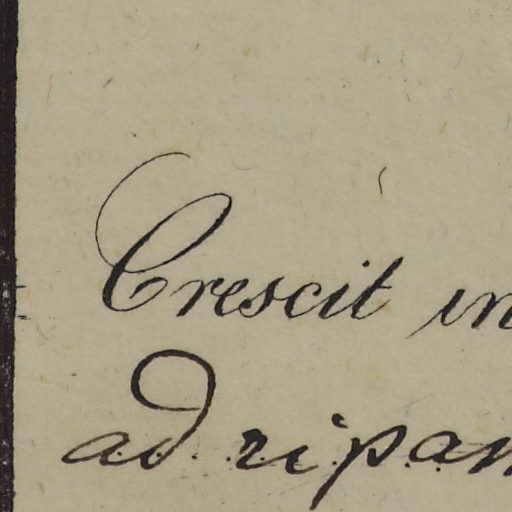 Crescit in
ad ripam